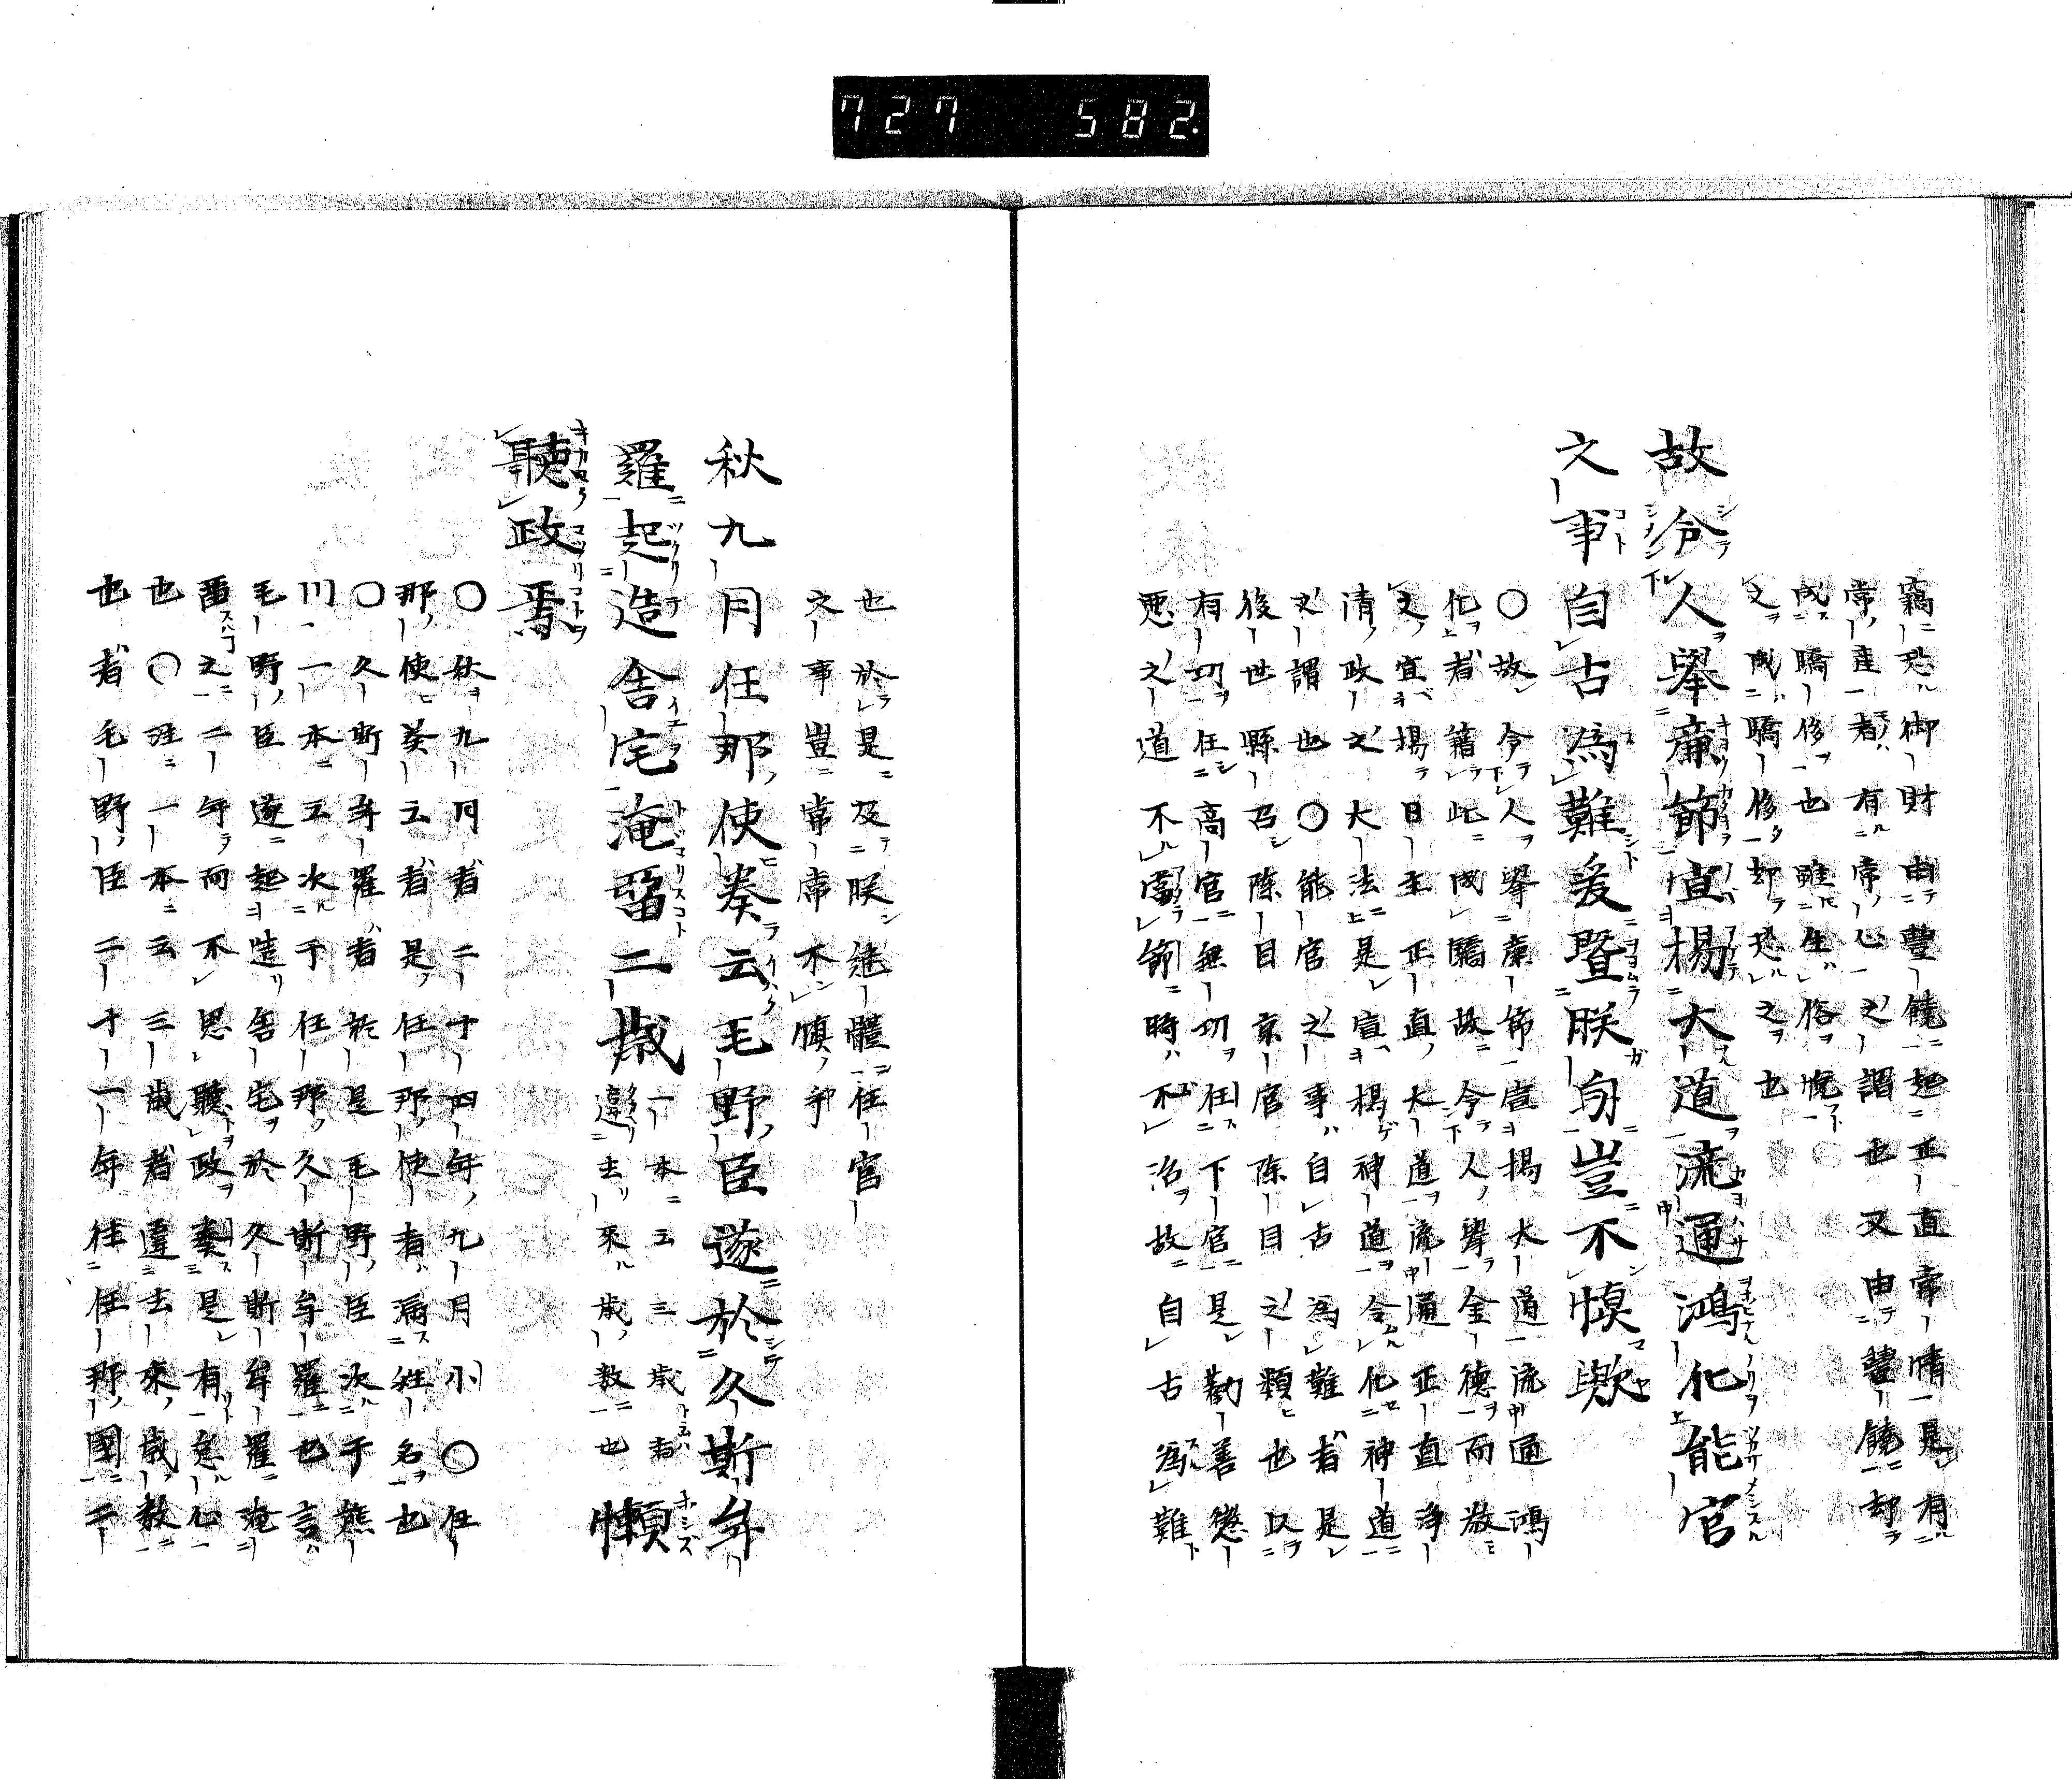 727 582.
竊恐御財由豐饒起正直常情是有
常産者有常心之謂也又由豐饒却
成驕侈也雖生俗悅
之成驕侈却恐之也
故令人舉廉節宣揚大道流通鴻化能官
之事自古為難爰暨朕身豈不慎歟
〇故令人舉廉節宣揚大道流通鴻
化者籍此成驕故令人舉金德而教
之宜揚日主正直大道流通正直淨
清政之大法是宣揚神道令化神道
之謂也〇能官之事自古為難者是
後世縣召除目京官除目之類也以
有功任高官無功任下官是勸善懲
惡之道不當節時不治故自古為難
也於是及朕継體任官
之事豈常席不慎乎
秋九月任那使奏云毛野臣遂於久斯牟
羅起造舎宅淹留二歳一本云三歳者違去来歳数也懶
聽政焉
〇秋九月者二十四年九月小〇任
那使奏云者是任那使者漏姓名也
〇久斯牟羅者於是毛野臣次于熊
川一本云次于任那久斯牟羅也言
毛野臣遂起造舎宅於久斯牟羅淹
留之二年而不思聽政奏是有怠心
也〇注一本云三歳者違去来歳数
也者毛野臣二十一年往任那國二